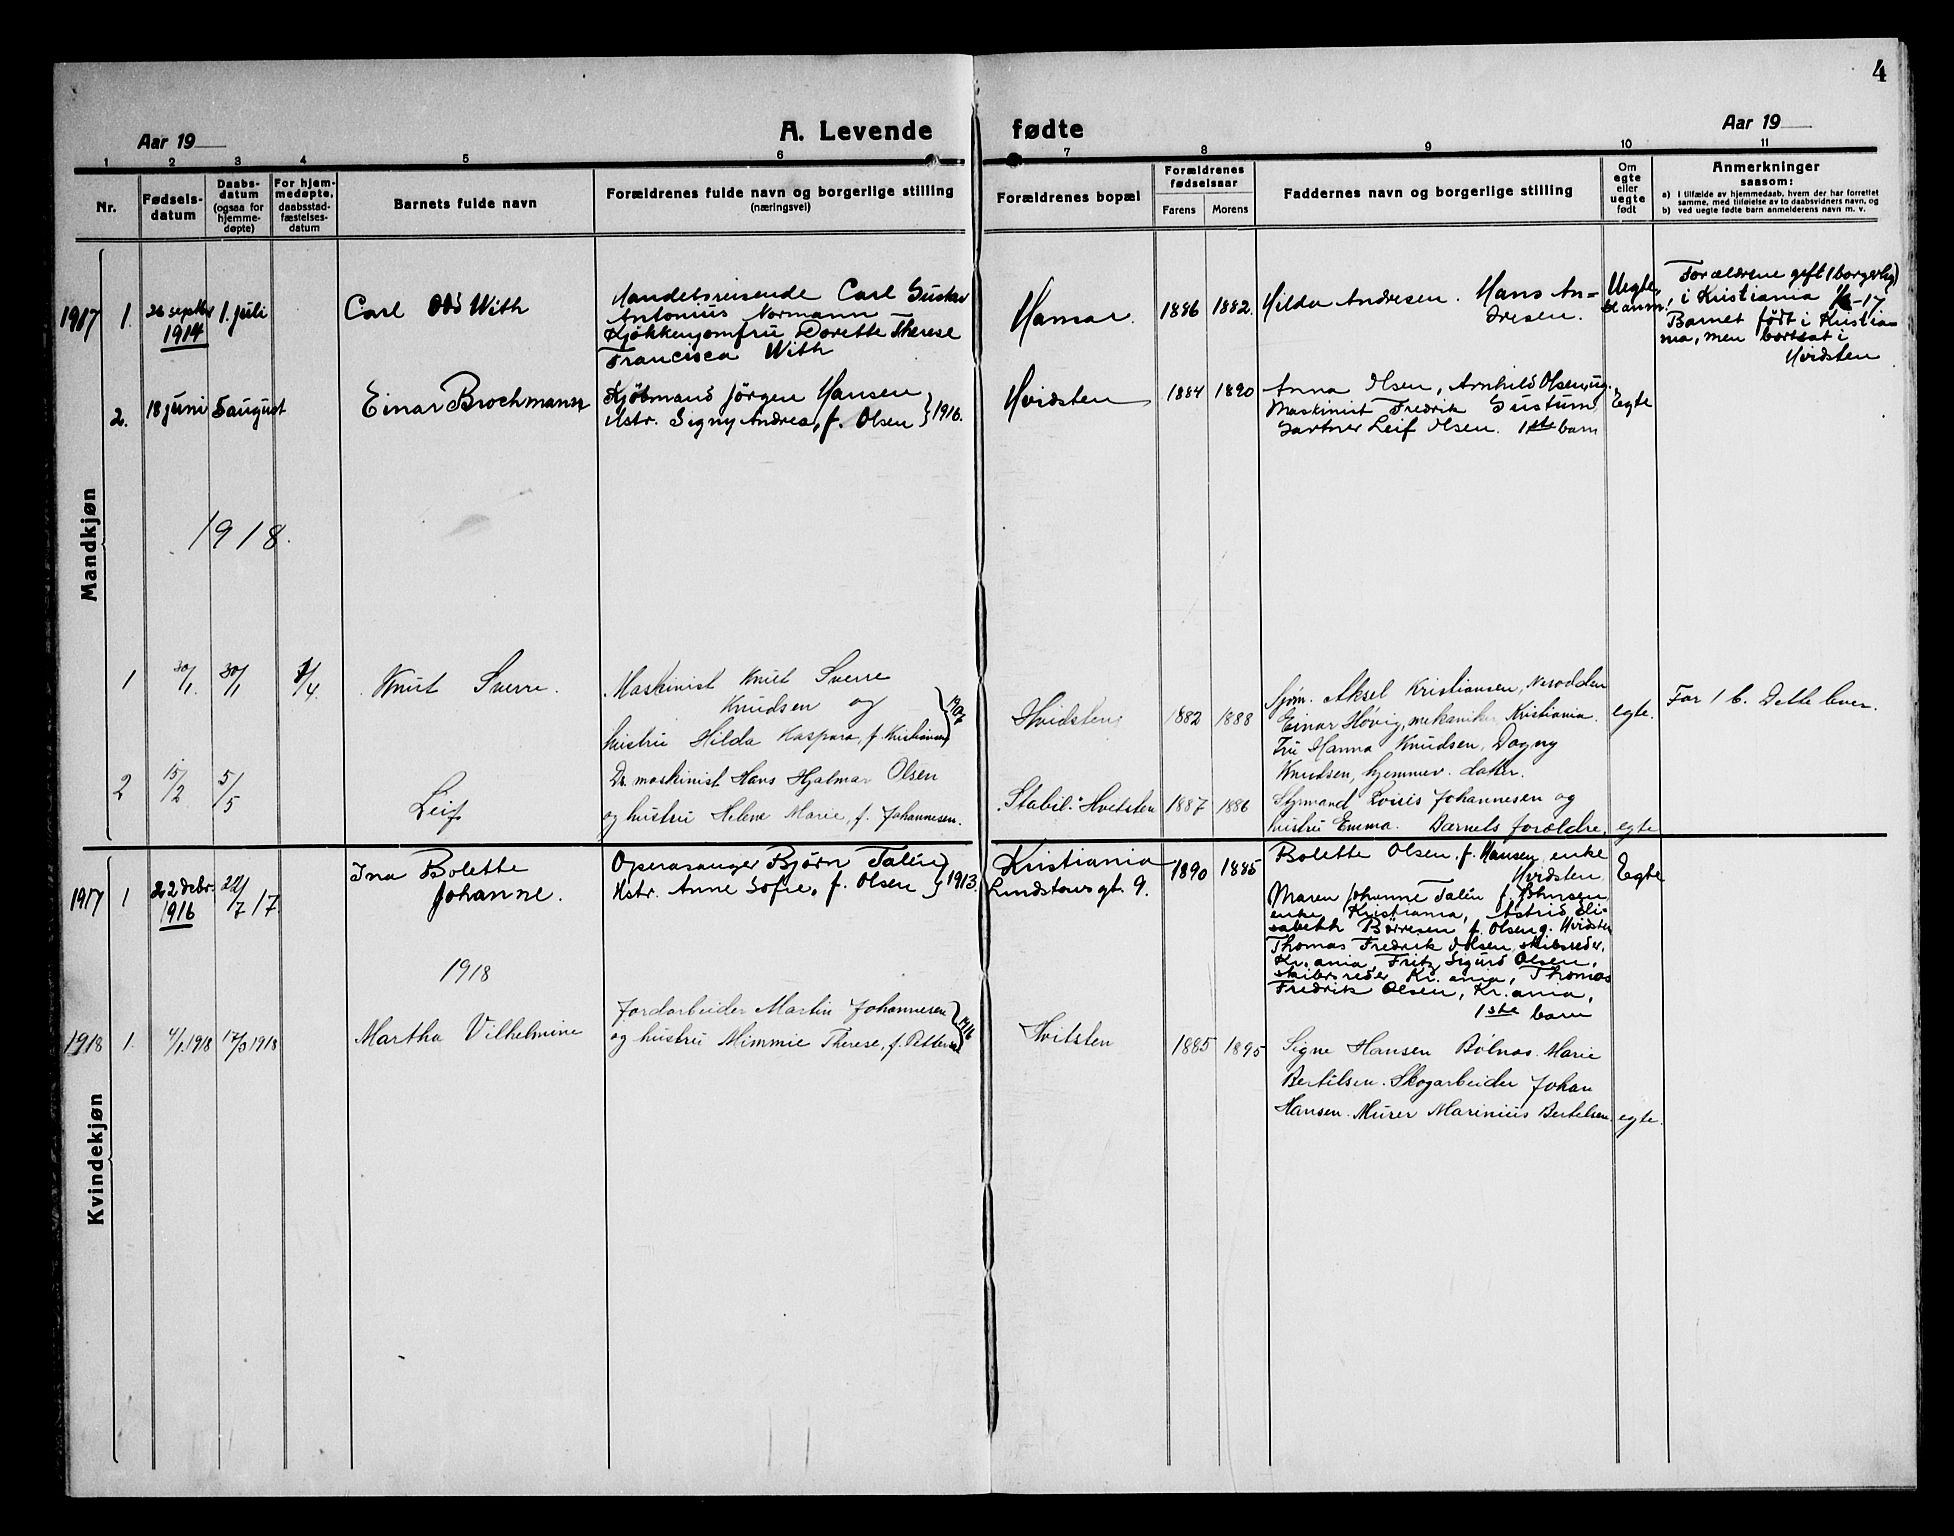 4
Aar 19
A. Levende fødte
Aar 19
1 2 3 4 5 6 7 8 9 10 11
Nr.
Fødsels-
datum
Daabs-
datum
(ogsaa for
hjemme-
døpte)
For hjem-
medøpte,
daabsstad-
fæstelses-
datum
Barnets fulde navn
Forældrenes fulde navn og borgerlige stilling
(næringsvei)
Forældrenes bopæl
Forældrenes
fødselsaar
Farens Morens
Faddernes navn og borgerlige stilling
Om
egte
eller
uegte
født
Anmerkninger
saasom:
a) i tilfælde av hjemmedaab, hvem der har forrettet
samme, med tilføielse av to daabsvidners navn, og
b) ved uegte fødte barn anmelderens navn m. v.
Mandkjøn
1917 1. 26 septbr
1914
1. juli
Carl Odd With
Handelsreisende Carl Gustav
Antonius Normann
Kjøkkenjomfru Dorette Therese
Francisca With
Hamar.
1886 1882.
Hilda Andresen. Hans An-
dresen.
Uegte,
Forældrene gift (borgerlig)
i Kristiania
Barnet født i Kristia-
nia, men bortsat i
Hvidsten
2. 18 juni 5 august
Einar Brochmann
Kjøbmand Jørgen Hansen
Hstr. Signy Andrea, f. Olsen } 1916.
Hvidsten
1884 1890
Anna Olsen, Arnhild Olsen, ug.
Maskinist Fredrik Gustum
Gartner Leif Olsen. 1ste barn
Egte
1918.
1 30/1. 30/1 1/4.
Knut Sverre.
Maskinist Knut Sverre
Knudsen og
hustru Hilda Kaspara, f. Kristiansen
Hvidsten
1882 1888
Sjøm. Aksel Kristiansen, Nesodden
Einar Høvig, mekaniker, Kristiania.
Fru Hanna Knudsen, Dagny
Knudsen, hjemmev. datter.
egte.
Før 1 b. Dette lever.
2 15/2 5/5
Leif
Ds. maskinist Hans Hjalmar Olsen
og hustru Helene Marie, f. Johannesen.
"Stabil" Hvitsten
1887 1886
Styrmand Louis Johannesen og
hustru Emma. Barnets forældre.
egte
Kvindekjøn
1917 1 22 debr.
1916
22/7 17.
Ina Bolette
Johanne.
Operasanger Bjørn Talén
Hstr. Anne Sofie, f. Olsen } 1913.
Kristiania
Lundstousgt. 9.
1890 1885
Bolette Olsen, f. Hansen, enke
Hvidsten
Maren Johanne Talén f. Johnsen
enke Kristiania, Astrid Eli-
sabeth Børresen f. Olsen g. Hvidsten
Thomas Fredrik Olsen, skibsreder,
Kr.ania, Fritz Sigurd Olsen,
skibsreder Kr.ania, Thomas
Fredrik Olsen, Kr.ania,
1ste barn
Egte
1918
1918 1. 4/1 1918 17/3 1918
Martha Vilhelmine
Jordarbeider Martin Johannesen
og hustru Mimmie Therese, f. Pettersen } 1916
Hvitsten
1885 1895
Signe Hansen Bølnas. Marie
Bertilsen. Skogarbeider Johan
Hansen. Murer Marinius Bertelsen.
egte.